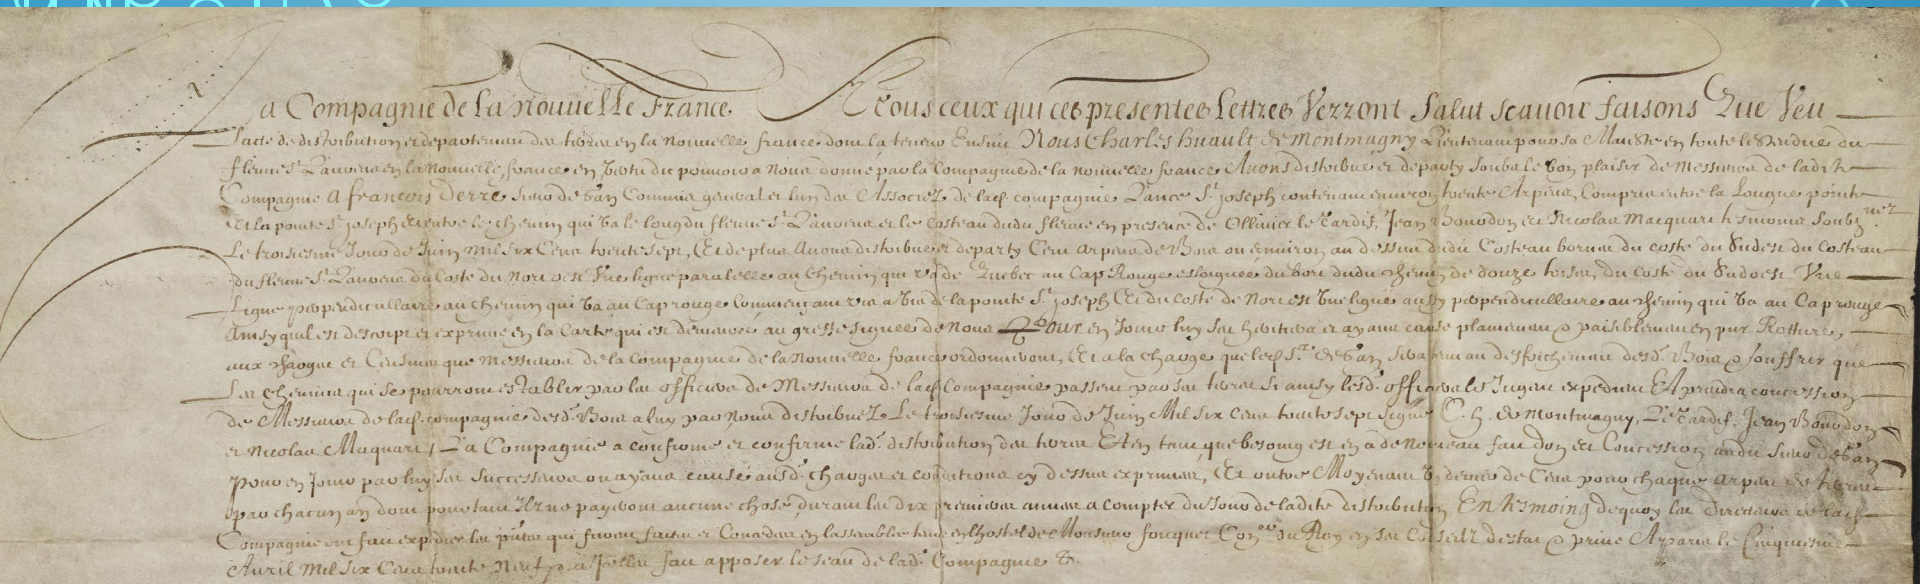 La Compagnie de la nouvelle France. A tous ceux qui ces presentes lettres Verront Salut scavoir faisons Que Veu
Lacte de distribution et departement des terres en la nouvelle france dont la teneur Ensuit Nous Charles huault de Montmagny Lieutenant pour sa Maiesté en toute lestendue du
fleuve St Laurens en la Nouvelle france en vertu du pouvoir a nous donné par la Compagnie de la nouvelle france Avons distribué et departy soubz le bon plaisir de Messieurs de ladite
Compagnie A françois Derré sieur de Gan Commis general et lun des Associez de lad. compagnie Lance St Joseph contenant environ trente Arpens, Compris entre la Longue pointe
Et la pointe St Joseph Et entre le chemin qui va le long du fleuve St Laurens et le Costeau dudit fleuve en presence de Ollivier le Tardif, Jean Bourdon et Nicolas Macquart tesmoins soubz
Le troisiesme Jour de Juin Mil six Cens trente sept, Et de plus Avons distribué et departy Cent arpens de Bois ou environ au dessus dudit Costeau bornés du costé du Sudest du Costeau
du fleuve St Laurens du Costé du Norouest Une ligne paralelle au Chemin qui va de Quebec au Cap Rouge esloignée du bord dudit chemin de douze toises, du costé du Sudoest Une
Ligne perpendicullaire au chemin qui va au Cap rouge Commençant vis a vis de la pointe St Joseph Et du costé de Nordest une ligne aussy perpendicullaire au chemin qui va au Cap rouge
Ainsy quil est descript et exprimé en la Carte qui est demeurée au greffe signée de Nous Pour en Jouir luy ses heritiers et ayans cause plainement & paisiblement en pur Rotture,
aux charges et Censives que Messieurs de la Compagnie de la Nouvelle france ordonneront, Et a la charge que led. Sr de Gan fera au desfrichement desd. Bois & souffrir que
Les Chemins qui se pourront establir par les officiers de Messieurs de lad. Compagnie passent par ses terres si ainsy lesd. officiers le Jugent expedient Et prendra concession
de Messieurs de lad. compagnie desd. Bois a luy par nous distribuez. Le troisiesme Jour de Juin Mil six Cens trente sept signé C. h. de Montmagny, Le Tardif, Jean Bourdon
et Nicolas Maquart, La Compagnie a confirmé et confirme lad. distribution des terres Et en tant que besoing est en a de Nouveau fait don et Concession audit sieur de Gan
pour en Jouir par luy ses successeurs ou ayans cause ausd. charges et conditions cy dessus exprimées, Et outre Moyenant deniers de Cens pour chaque arpent de terre
par chacun an dont pourtant Ilz ne payeront aucune chose durant les dix premieres années a compter du Jour de ladite distribution En tesmoing dequoy les directeurs de lad.
Compagnie ont fait expedier les qui furent faites et Concedées en lassemblée tenue en lhostel de Monsieur fouquet Conseiller du Roy en ses Conseilz destat & privé A paris le Cinquiesme
Avril Mil six Cens trente Neuf, & a Icelles fait apposer le sceau de lad. Compagnie &.